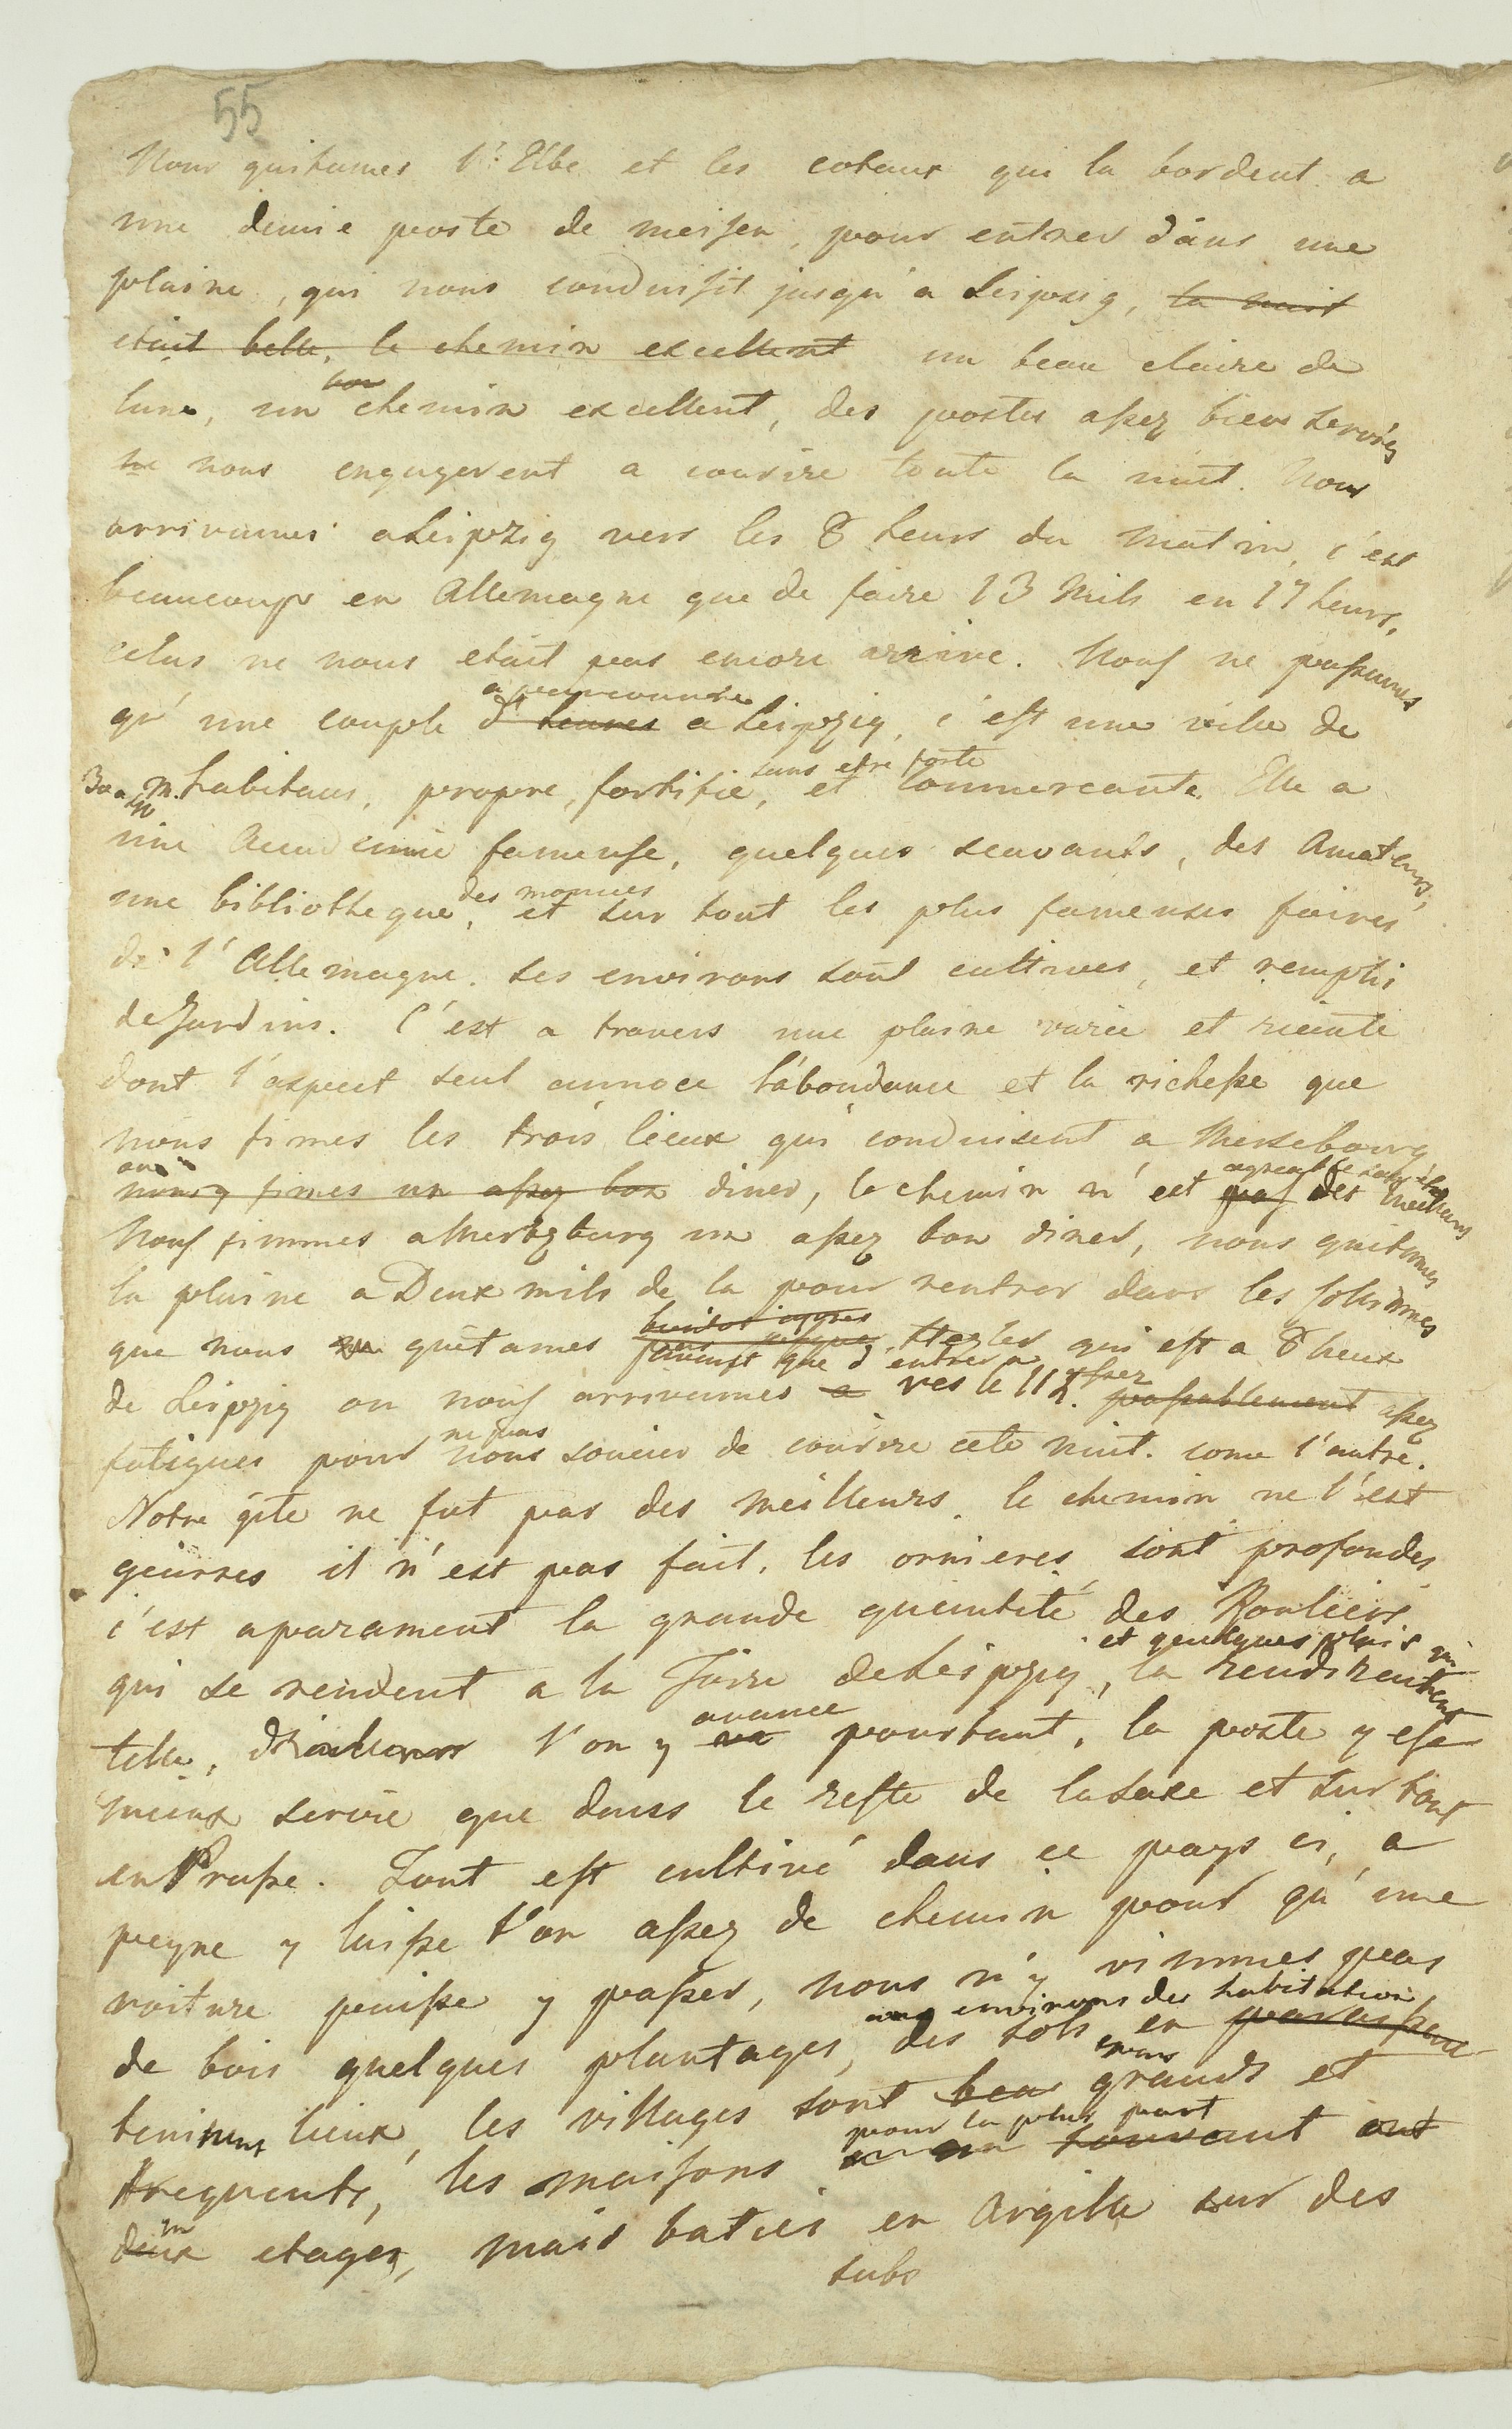 55
Nous quitames l'Elbe et les cotaux qui la bordent a
une demie poste de meisen, pour entrer dans une
plaine, qui nous conduisit jusqu'a Leipzig, la nuit
etait belle, le chemin excellent un beau claire de
bon
lune, un chemin excellent, des postes assez bien servies
ne nous engagerent a courire toute la nuit. Nous
arrivames a Leipzig vers les 8 heurs du matin, c'est
beaucoup en Allemagne que de faire 13 Mils en 17 heurs,
celas ne nous etait pas encore arrive. Nous ne passames
qu'une couple d'heures a Leipzig, c'est une ville de
sans etre forte
30 a m. habitans, propre, fortifié, et Commercante. Elle a
une Academie fameuse, quelques scavants, des Amateurs,
des
une bibliotheque, et sur tout les plus fameuses foires
de l'Allemagne. Ses environs sont cultives, et rempli
de Jardins. C'est a travers une plaine variee et riente
dont l'aspect seul annoce l'abondance et la richesse que
nous fimes les trois lieux qui conduisent a Mersebourg
nous y fimes un assez bon diner, le chemin n'est pas des meilleurs
Nous fimmes a Mertzburg un assez bon diner, nous quitames
la plaine a Deux mils de la pour rentrer dans les
bientot apres
que nous quitames que d'entrer a qui est a 8 lieux
de Leipzig ou nous arrivames a ves le 11 h. passablement assez
ne pas
fatigues pour nous soucier de courire cete nuit. come l'autre.
Notre gite ne fut pas des meilleurs. le chemin ne l'est
geurres il n'est pas fait, les ornieres sont profondes,
c'est aparament la grande queintité des Rouliers
et quelques pluis qui
qui se rendent a la Foire de Leipzig, la rendirent
avance
telle, l'on y va pourtant, la poste y est
mieux servie que dans le reste de la Saxe et sur tout
en Prusse. Tout est cultivé dans ce pays ci, a
peyne y laisse t'on assez de chemin pour qu'une
voiture puisse y passer, nous n'y vimmes pas
aux environs des habitation
de bois quelques plantages, des sols en
epars
teninent lieux, les villages sont beau grands et
pour la plus part
frequents, les maisons en souvant ont
un
deux etages, mais baties en Argille sur des
subs